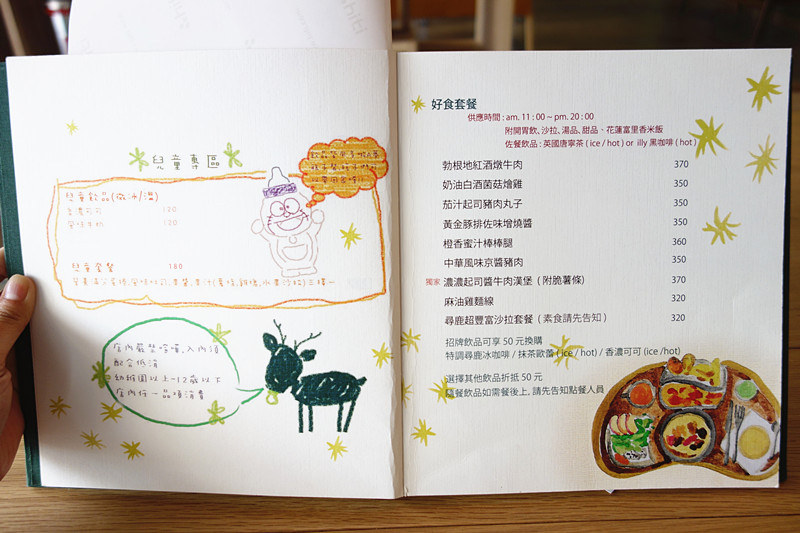 兒童專區
兒童飲品(微冰/溫)
香濃可可 120
風味牛奶 120
兒童套餐 180
店內嚴禁喧嘩,入內須
配合低消
幼稚園以上~12歲以下
店內任一品項消費
好食套餐
供應時間 : am. 11 : 00 ~ pm. 20 : 00
附開胃飲, 沙拉, 湯品, 甜品、花蓮富里香米飯
佐餐飲品 : 英國唐寧茶 ( ice / hot ) or illy 黑咖啡 ( hot )
勃根地紅酒燉牛肉 370
奶油白酒菌菇燴雞 350
茄汁起司豬肉丸子 350
黃金豚排佐味增燒醬 350
橙香蜜汁棒棒腿 360
中華風味京醬豬肉 350
獨家 濃濃起司醬牛肉漢堡 ( 附脆薯條 ) 370
麻油雞麵線 320
尋鹿超豐富沙拉套餐 ( 素食請先告知 ) 320
招牌飲品可享 50 元換購
特調尋鹿冰咖啡 / 抹茶歐蕾 ( ice / hot ) / 香濃可可 ( ice /hot )
選擇其他飲品折抵 50 元
隨餐飲品如需餐後上, 請先告知點餐人員